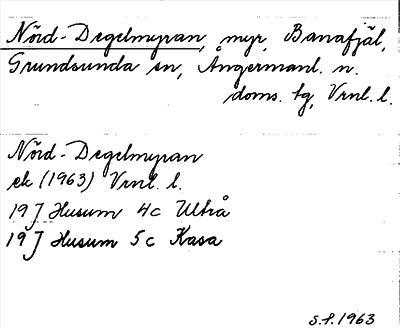 Nörd-Degelmyran, myr, Banafjäl,
Grundsunda sn, Ångermanl. n.
doms. tg, Vrnl. l.
Nörd-Degelmyran
ek (1963) Vrnl. l.
19J Husum 4c Ultrå
19J Husum 5c Kasa
S.F. 1963